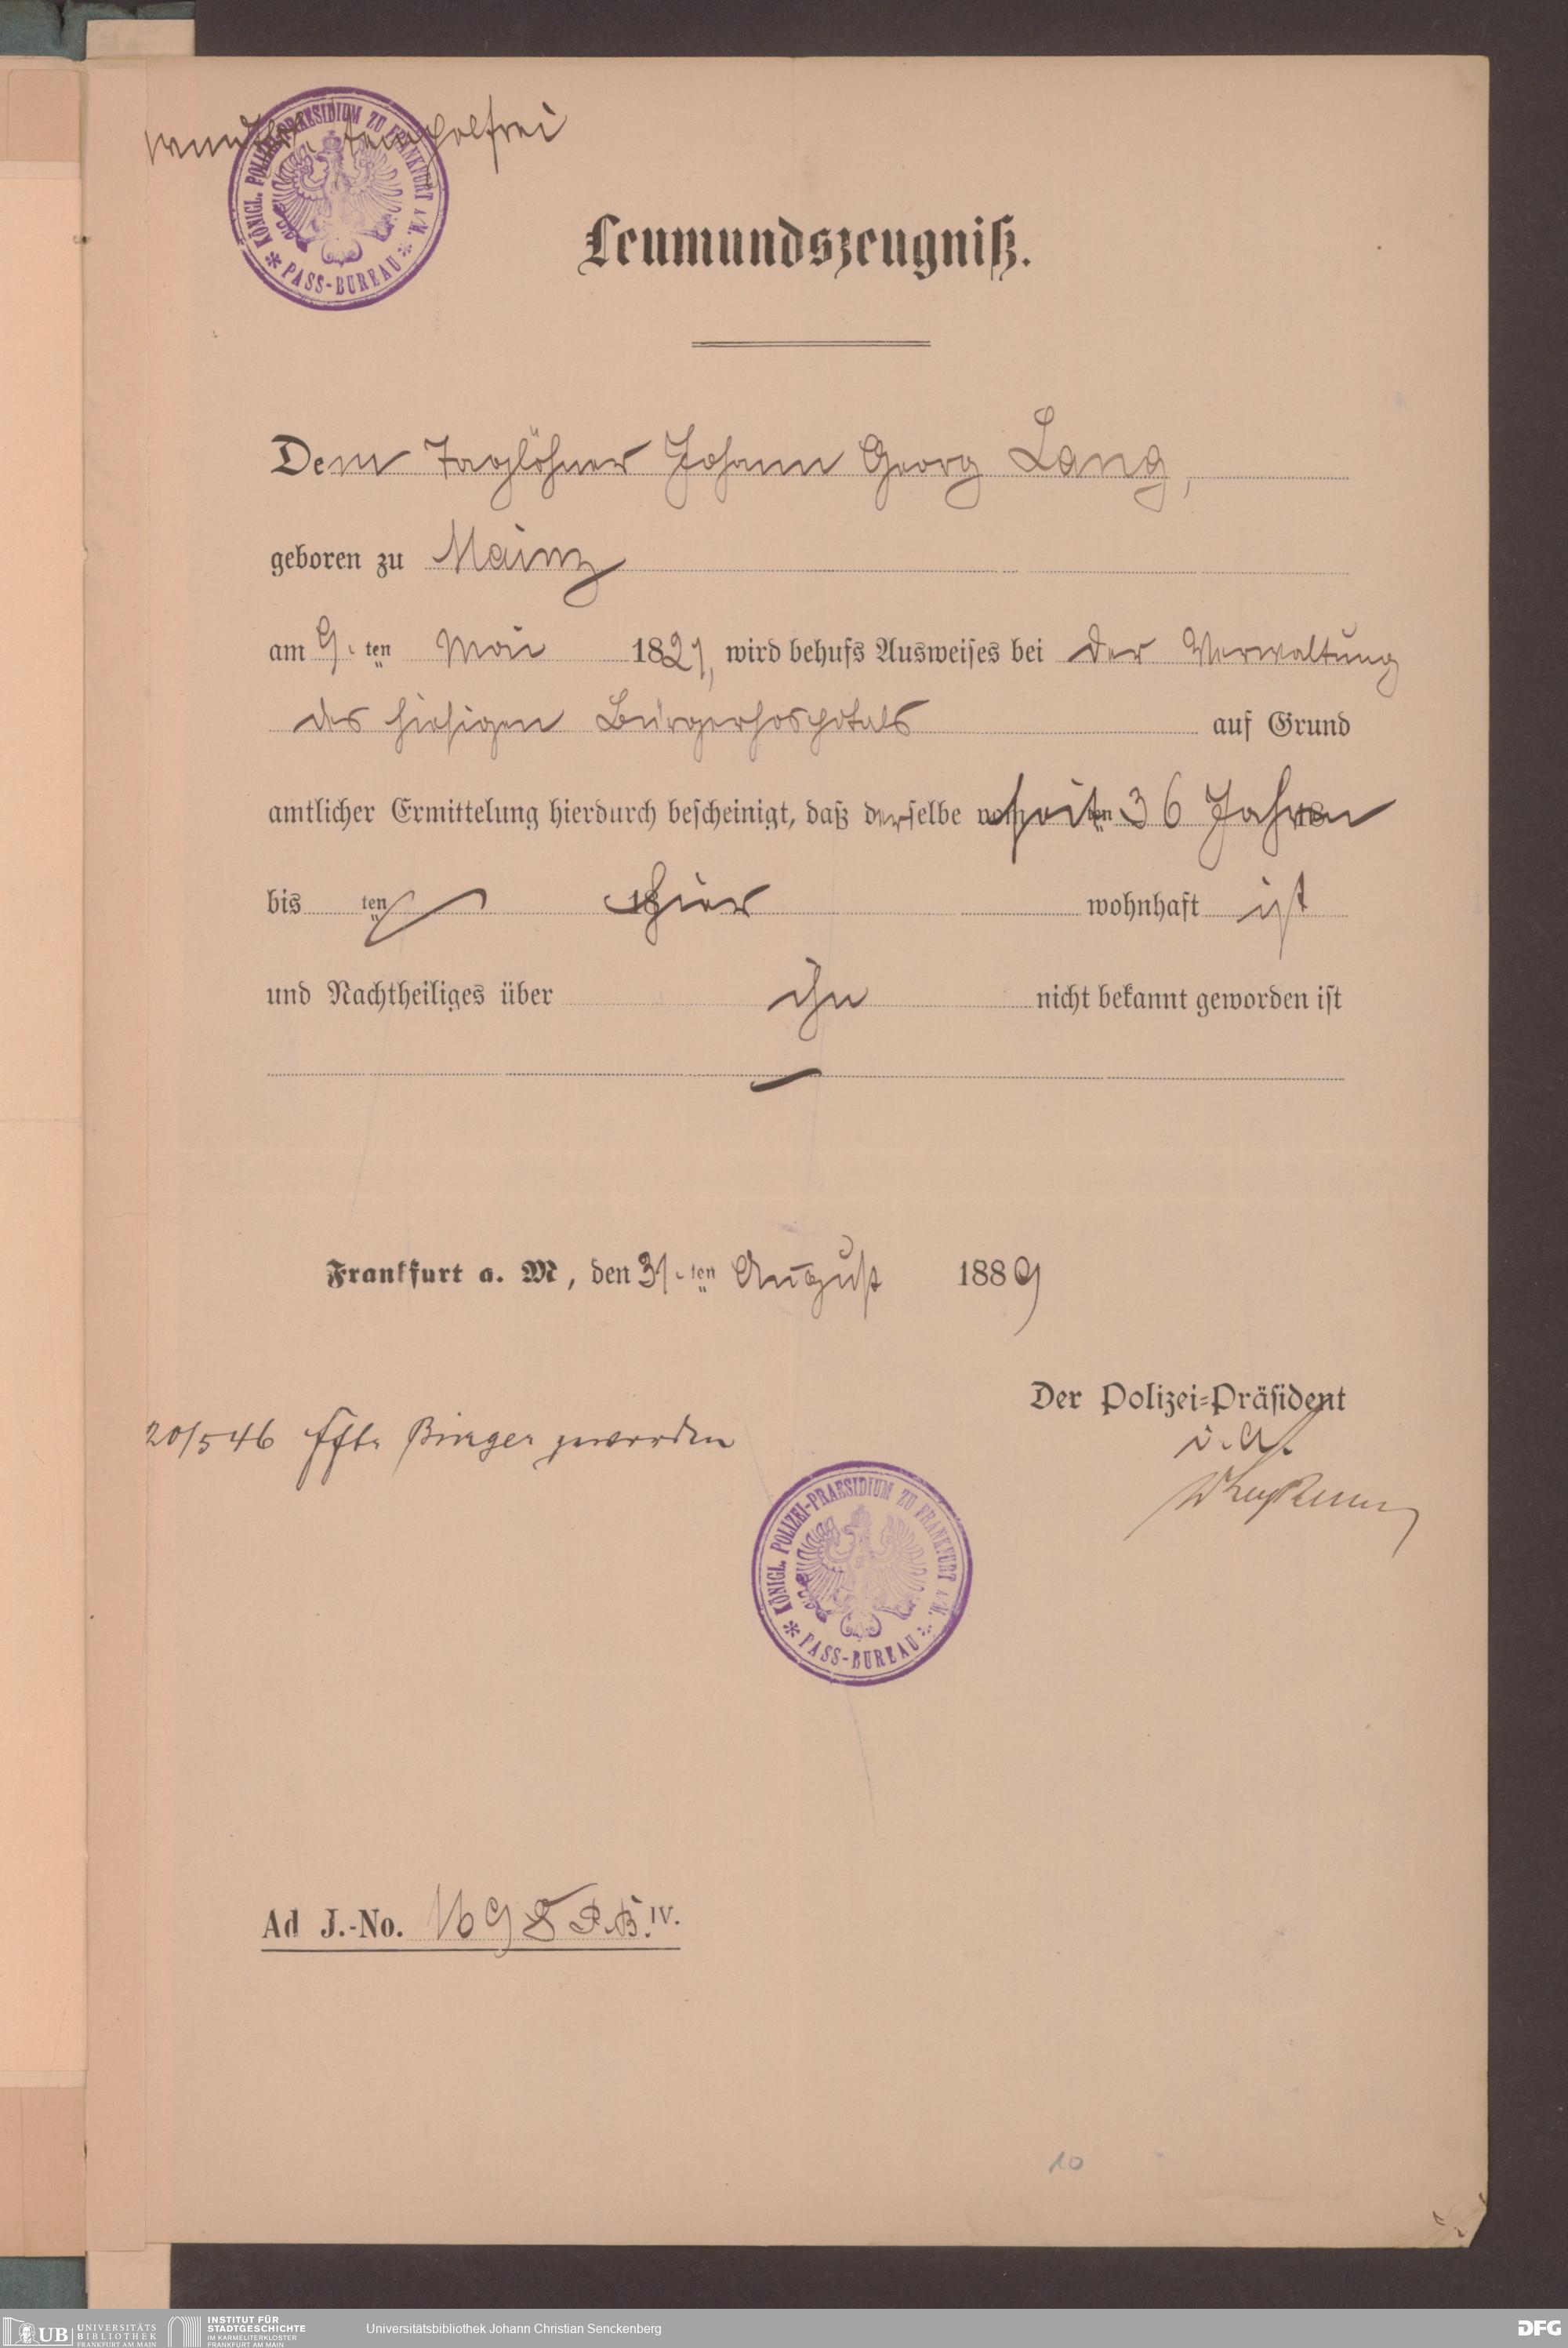 stempelfrei
KÖNIGL. POLIZEI-PRAESIDIUM ZU FRANKFURT a/M.
* PASS-BUREAU *
Leumundszeugniß.
Dem Taglöhner Johann Georg Lang,
geboren zu Mainz
am 9. ten Mai 1821, wird behufs Ausweises bei der Verwaltung
des hiesigen Bürgerhospitals auf Grund
amtlicher Ermittelung hierdurch bescheinigt, daß derselbe seit 36 Jahren
bis ten hier wohnhaft ist
und Nachtheiliges über ihn nicht bekannt geworden ist
Frankfurt a. M, den 31. ten August 1889
Der Polizei-Präsident
i. A.
20/5 46 Bürger geworden
KÖNIGL. POLIZEI-PRAESIDIUM ZU FRANKFURT a/M.
* PASS-BUREAU *
Ad J.-No. P. B. IV.
10
UB UNIVERSITÄTS BIBLIOTHEK FRANKFURT AM MAIN
INSTITUT FÜR STADTGESCHICHTE IM KARMELITERKLOSTER FRANKFURT AM MAIN
Universitätsbibliothek Johann Christian Senckenberg
DFG